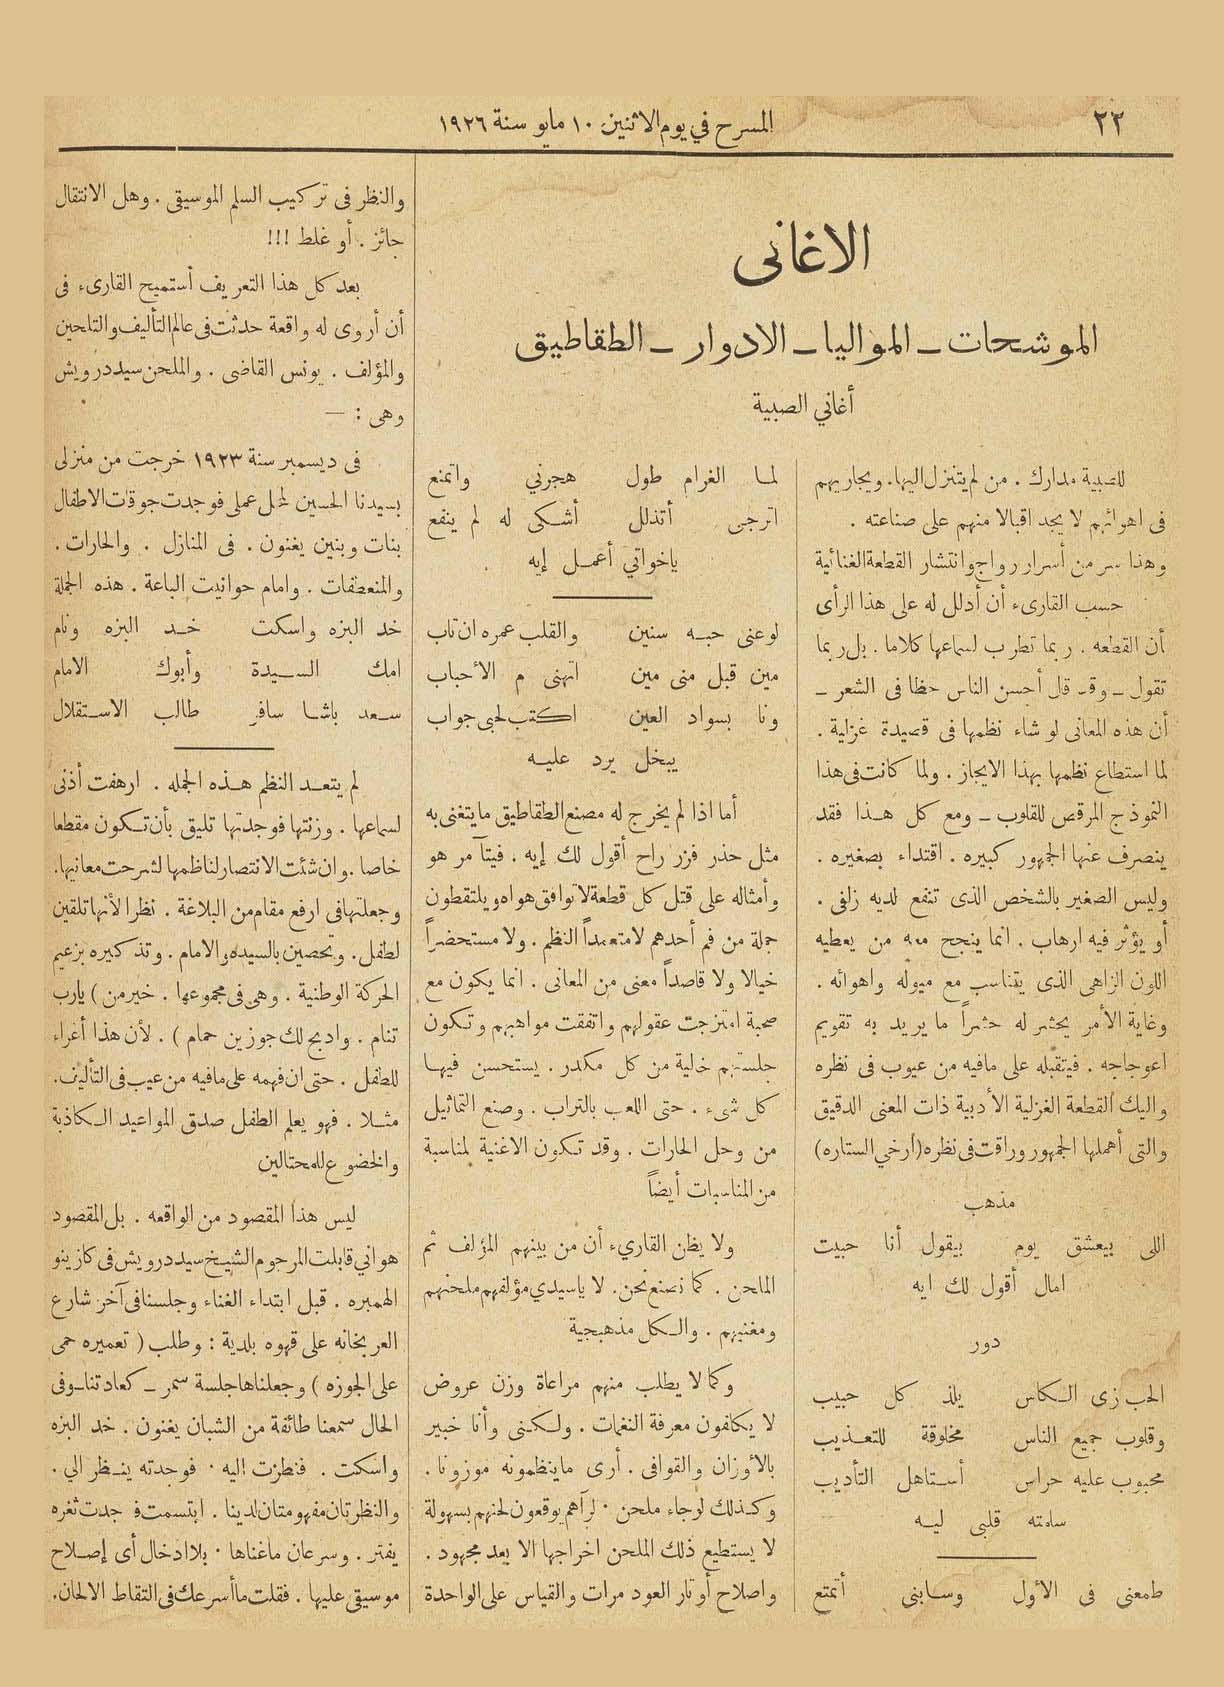 ٢٢
المسرح في يوم الاثنين ١٠ مايو سنة ١٩٢٦
الاغانى
الموشحات ــ المواليا ــ الادوار ــ الطقاطيق
أغاني الصبية
للصبية مدارك . من لم يتنزل اليها. ويجاريهم
فى اهوائهم لا يجد اقبالا منهم على صناعته .
وهذا سر من أسرار رواج وانتشار القطعة الغنائية
حسب القارىء أن أدلل له على هذا الرأى
أن القطعه . ربما تطرب لسماعها كلاما . بل ربما
تقول ــ وقد قال أحسن الناس حظا فى الشعر ــ
أن هذه المعانى لو شاء نظمها فى قصيدة غزلية .
لما استطاع نظمها بهذا الايجاز . ولما كانت فى هذا
النموذج المرقص للقلوب ــ ومع كل هذا فقد
ينصرف عنها الجمهور كبيره . اقتداء بصغيره .
وليس الصغير بالشخص الذى تنفع لديه زلفى .
أو يؤثر فيه ارهاب . انما ينجح معه من يعطيه
اللون الزاهى الذى يتناسب مع ميوله واهوائه .
وغاية الأمر يحشر له حشراً ما يريد به تقويم
اعوجاجه . فيتقبله على مافيه من عيوب فى نظره
واليك القطعة الغزلية الأدبية ذات المعنى الدقيق
والتى أهملها الجمهور وراقت فى نظره (ارخي الستاره)
مذهب
اللى بيعشق يوم بيقول أنا حبيت
امال أقول لك ايه
دور
الحب زى الكاس يلذ كل حبيب
وقلوب جميع الناس مخلوقة للتعذيب
محبوب عليه حراس أستاهل التأديب
سلمته قلبى ليه
طمعنى فى الأول وسابنى أتمتع
لما الغرام طول هجرني واتمنع
اترجى أتذلل أشكى له لم ينفع
ياخواتي أعمل إيه
لوعنى حبه سنين والقلب عمره ان تاب
مين قبل منى مين اتهنى م الأحباب
ونا بسواد العين اكتب لحبى جواب
يبخل يرد عليه
أما اذا لم يخرج له مصنع الطقاطيق مايتغنى به
مثل حذر فزر راح أقول لك إيه . فيتآمر هو
وأمثاله على قتل كل قطعة لا توافق هواه ويلتقطون
جملة من فم أحدهم لا متعمداً النظم . ولا مستحضراً
خيالا ولا قاصداً معنى من المعانى . انما يكون مع
صحبة امتزجت عقولهم واتفقت مواهبهم وتكون
جلستهم خالية من كل مكدر . يستحسن فيها
كل شىء . حتى اللعب بالتراب . وصنع التماثيل
من وحل الحارات . وقد تكون الاغنية لمناسبة
من المناسبات أيضاً
ولا يظن القاريء أن من بينهم المؤلف ثم
الملحن . كما نصنع نحن. لا ياسيدي مؤلفهم ملحنهم
ومغنيهم . والكل مذهبجية
وكما لا يطلب منهم مراعاة وزن عروض
لا يكلفون معرفة النغمات . ولكنى وأنا خبير
بالأوزان والقوافى . أرى ماينظمونه موزونا .
وكذلك لو جاء ملحن . لرآهم يوقعون لحنهم بسهولة
لا يستطيع ذلك الملحن اخراجها الا بعد مجهود .
واصلاح أوتار العود مرات والقياس على الواحدة
والنظر فى تركيب السلم الموسيقى . وهل الانتقال
جائز . أو غلط !!!
بعد كل هذا التعريف أستميح القارىء فى
أن أروى له واقعة حدثت فى عالم التأليف والتلحين
والمؤلف . يونس القاضى . والملحن سيد درويش
وهى : —
فى ديسمبر سنة ١٩٢٣ خرجت من منزلى
بسيدنا الحسين لمحل عملى فوجدت جوقات الاطفال
بنات وبنين يغنون . فى المنازل . والحارات .
والمنعطفات . وامام حوانيت الباعة . هذه الجملة
خد البزه واسكت خد البزه ونام
امك السيدة وأبوك الامام
سعد باشا سافر طالب الاستقلال
لم يتعد النظم هذه الجمله . ارهفت أذنى
لسماعها . وزنتها فوجدتها تليق بأن تكون مقطعا
خاصا . وان شئت الانتصار لناظمها لشرحت معانيها.
وجعلتها فى ارفع مقام من البلاغة . نظرا لأنها تلقين
لطفل. وتحصين بالسيده والامام . وتذكيره بزعيم
الحركة الوطنية . وهى فى مجموعها . خير من ) يارب
تنام . وادبح لك جوزين حمام ) . لأن هذا أغراء
للطفل . حتى ان فهمه على مافيه من عيب فى التأليف.
مثلا . فهو يعلم الطفل صدق المواعيد الكاذبة
والخضوع للمحتالين
ليس هذا المقصود من الواقعه . بل المقصود
هو اني قابلت المرحوم الشيخ سيد درويش فى كازينو
الهمبره . قبل ابتداء الغناء وجلسنا فى آخر شارع
العربخانه على قهوه بلدية : وطلب ( تعميره حمى
على الجوزه ) وجعلناها جلسة سمر ــ كعادتنا ــ وفى
الحال سمعنا طائفة من الشبان يغنون . خد البزه
واسكت . فنظرت اليه . فوجدته ينظر الي .
والنظرتان مفهومتان لدينا . ابتسمت فوجدت ثغره
يفتر . وسرعان ماغناها . بلا ادخال أى إصلاح
موسيقى عليها . فقلت ما أسرعك فى التقاط الالحان.